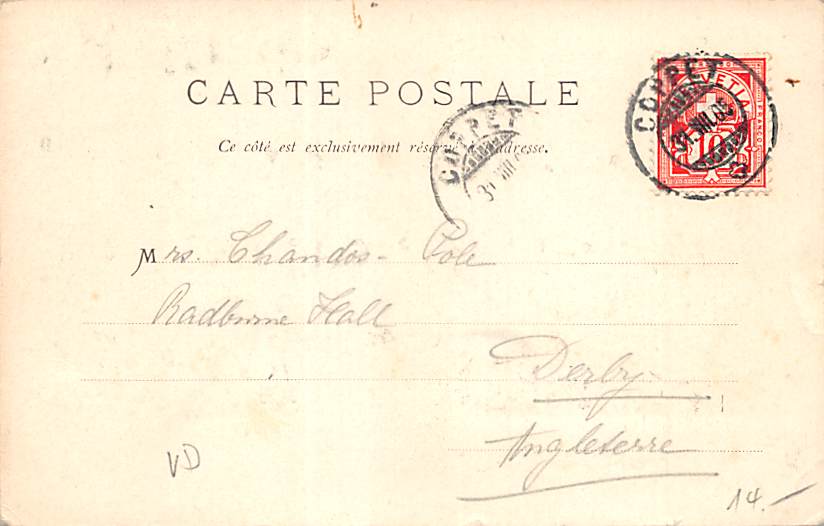 CARTE POSTALE
Ce côté est exclusivement réservé à l'adresse.
COPPET
COPPET
31.VIII.05
HELVETIA
FRANCO
10
Mrs. Chandos-Pole
Radburne Hall
Derby
Angleterre
VD
14.-